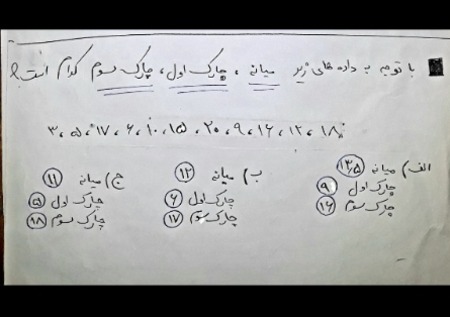 با توجه به داده های زیر میانه ، چارک اول ، چارک سوم کدام است؟
۳ ، ۵ ، ۱۷ ، ۶ ، ۱۰ ، ۱۵ ، ۲۰ ، ۹ ، ۱۶ ، ۱۲ ، ۱۸
الف) میانه ۱۳/۵
چارک اول ۹
چارک سوم ۱۶
ب) میانه ۱۲
چارک اول ۶
چارک سوم ۱۷
ج) میانه ۱۱
چارک اول ۵
چارک سوم ۱۸